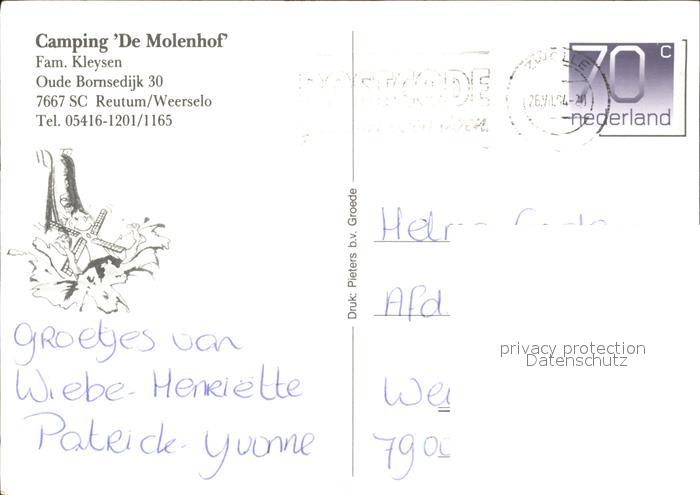 Camping 'De Molenhof'
Fam. Kleysen
Oude Bornsedijk 30
7667 SC Reutum/Weerselo
Tel. 05416-1201/1165
POSTCODE
ZWOLLE
70 c
nederland
Druk: Pieters b.v. Groede
Groetjes van
Wiebe-Henriëtte
Patrick-Yvonne
Afd.
privacy protection
Datenschutz